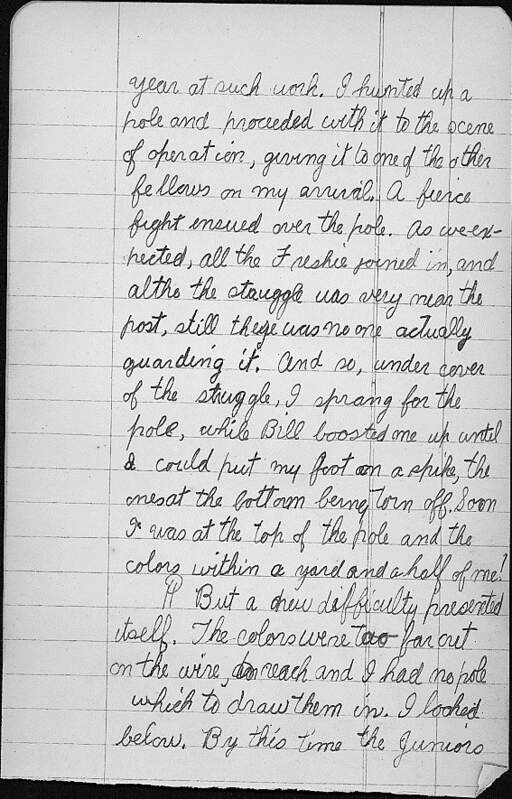 year at such work. I hunted up a
pole and proceeded with it to the scene
of operation, giving it to one of the other
fellows on my arrival. A fierce
fight ensued over the pole. As we ex-
pected, all the Freshie joined in, and
altho the struggle was very near the
post, still there was no one actually
guarding it. And so, under cover
of the struggle, I sprang for the
pole, while Bill boosted me up until
I could put my foot on a spike, the
ones at the bottom being torn off. Soon
I was at the top of the pole and the
colors within a yard and a half of me!
¶ But a new difficulty presented
itself. The colors were too far out
on the wire, to reach and I had no pole
which to draw them in. I looked
below. By this time the Juniors